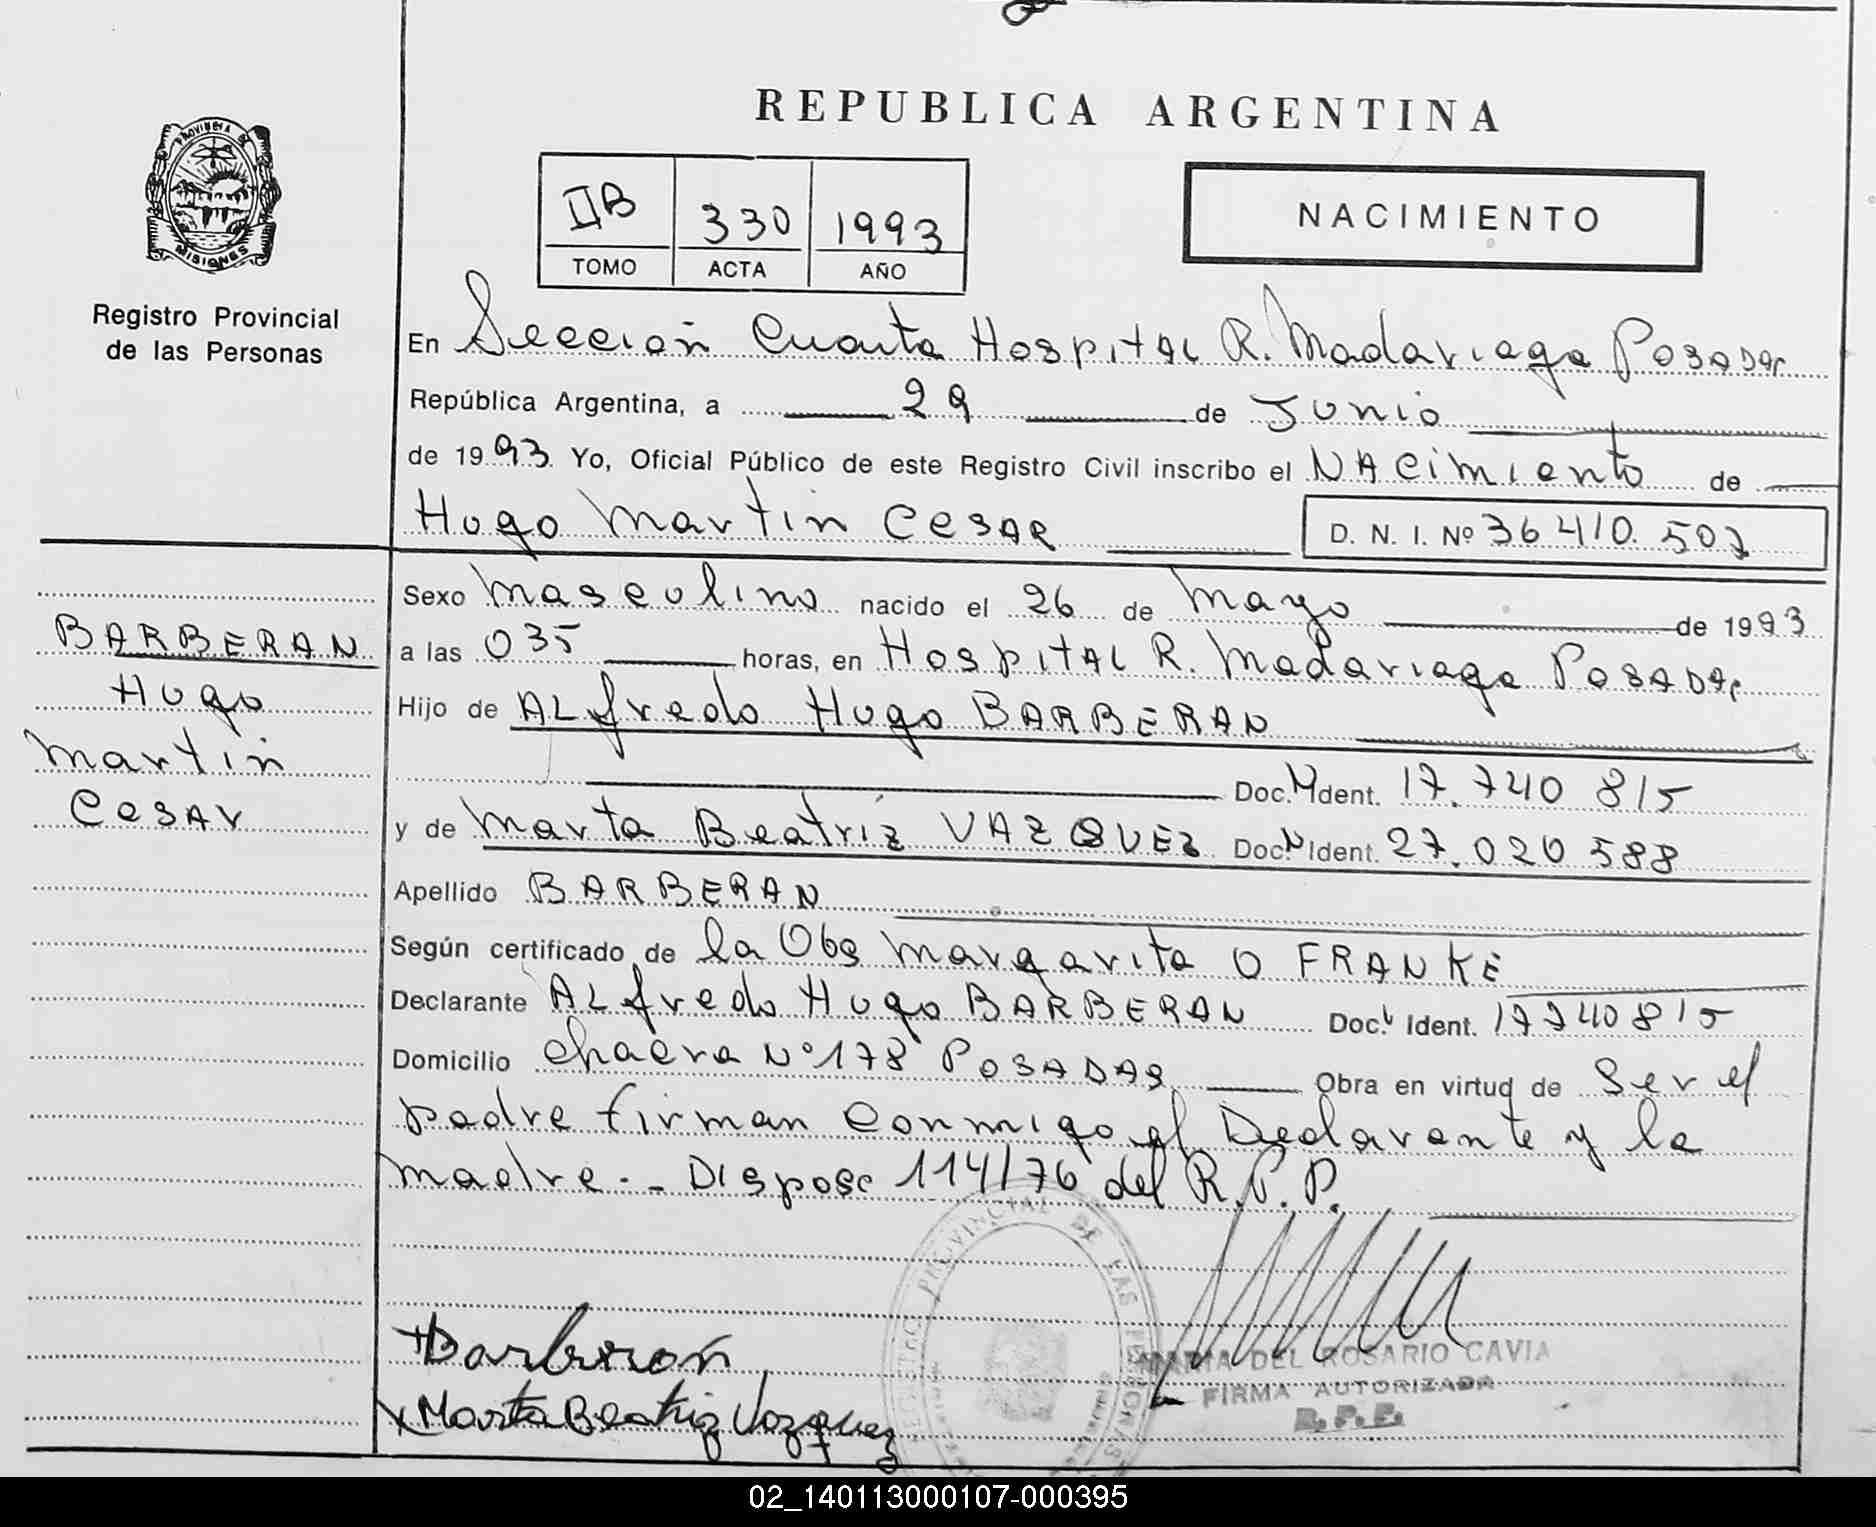 REPUBLICA ARGENTINA
PROVINCIA DE
MISIONES
Registro Provincial
de las Personas
IIB 330 1993
TOMO ACTA AÑO
NACIMIENTO
En Sección Cuarta Hospital R. Madariaga Posadas
República Argentina, a 29 de Junio
de 1993 Yo, Oficial Público de este Registro Civil inscribo el NAcimiento de
Hugo Martin Cesar D. N. I. Nº 36 410. 507
Sexo Masculino nacido el 26 de Mayo de 1993
a las 035 horas, en Hospital R. Madariaga Posadas
Hijo de Alfredo Hugo BARBERAN
Doc. N Ident. 17.740 815
y de Marta Beatriz VAZQUEZ Doc. N Ident. 27.020 588
Apellido BARBERAN
Según certificado de la Obs Margarita O FRANKE
Declarante Alfredo Hugo BARBERAN Doc. Ident. 17740815
Domicilio Chacra Nº 178 POSADAS Obra en virtud de Ser el
padre firman conmigo el Declarante y la
madre.- Disposc 114/76 del R.P.P.
BARBERAN
Hugo
Martin
Cesar
HBarberán
x Marta Beatriz Vazquez
REGISTRO PROVINCIAL DE LAS PERSONAS
MARIA DEL ROSARIO CAVIA
FIRMA AUTORIZADA
R.P.P.
02_140113000107-000395